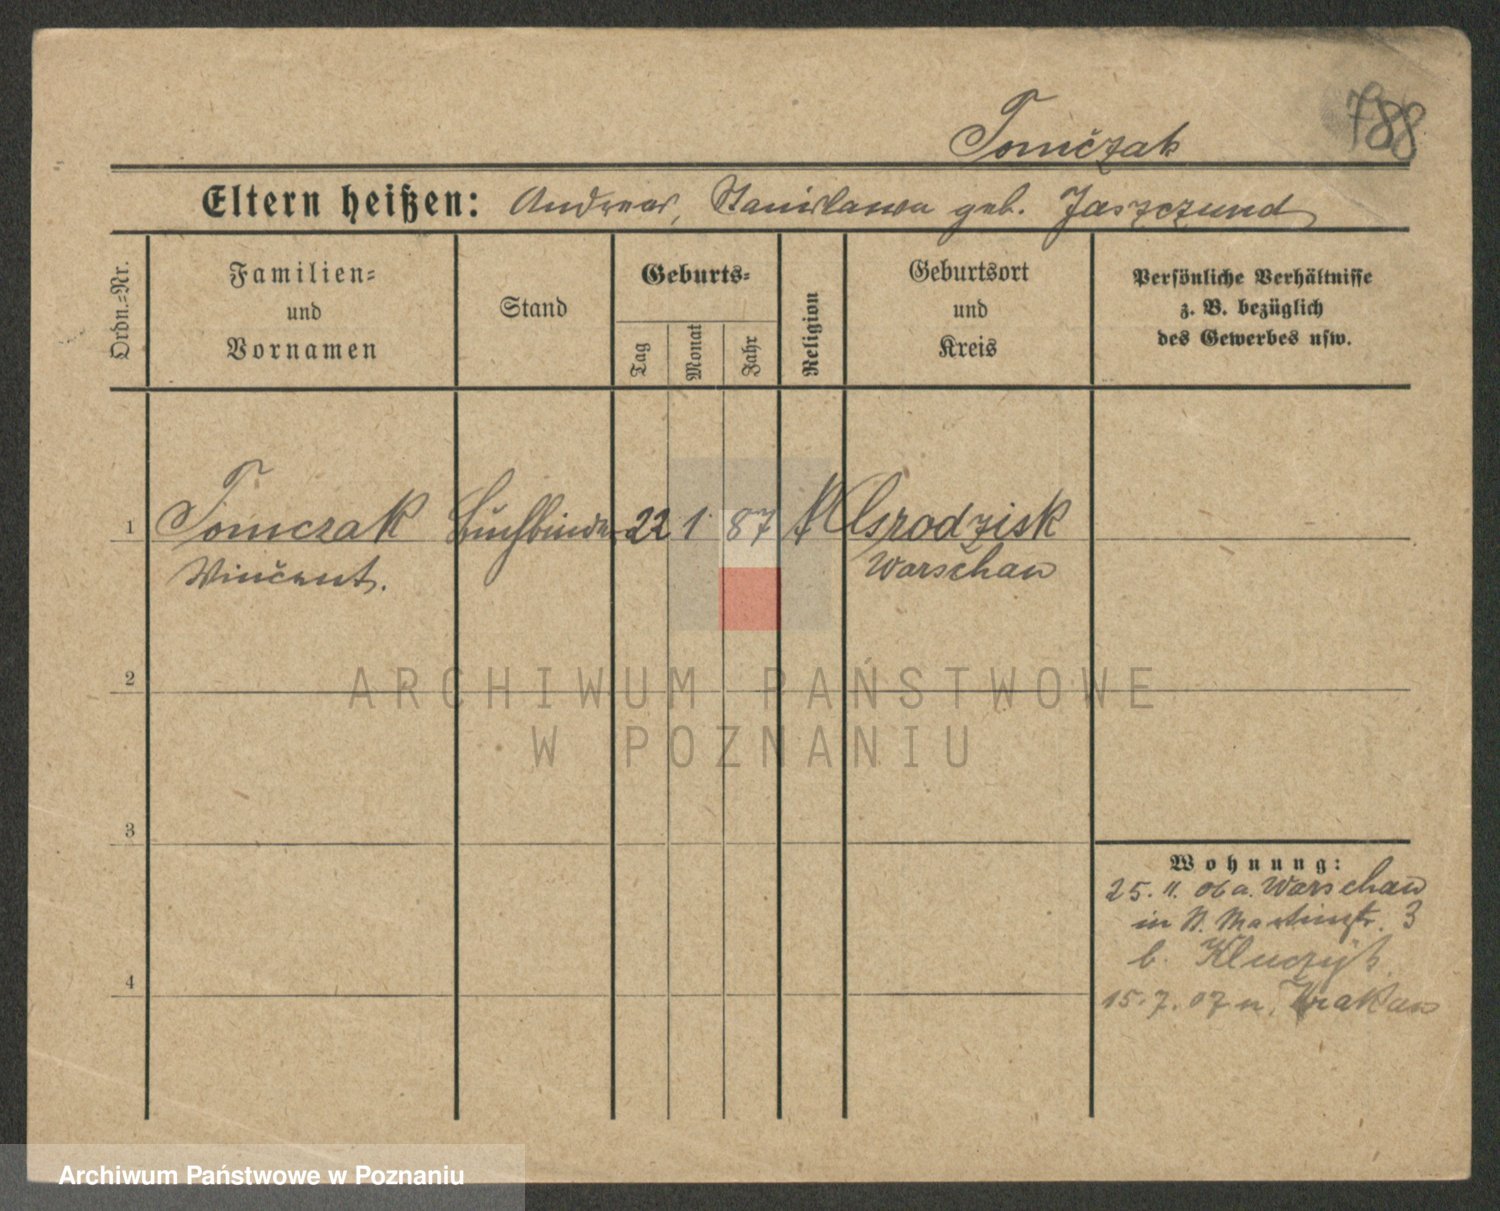 788
Tomczak
Eltern heißen: Andreas, Stanislawa geb. Jaszczund
Ordn.=Nr.
Familien=
und
Vornamen
Stand
Geburts=
Tag
Monat
Jahr
Religion
Geburtsort
und
Kreis
Persönliche Verhältnisse
z. B. bezüglich
des Gewerbes usw.
1 Tomczak Buchbinder 22 1 87 k Grodzisk
Vincent. Warschau
2
ARCHIWUM PAŃSTWOWE
W POZNANIU
3
Wohnung:
25. 11. 06 a. Warschau
in St. Martinstr. 3
b.
4
15. 7. 07 n. Krakau
Archiwum Państwowe w Poznaniu